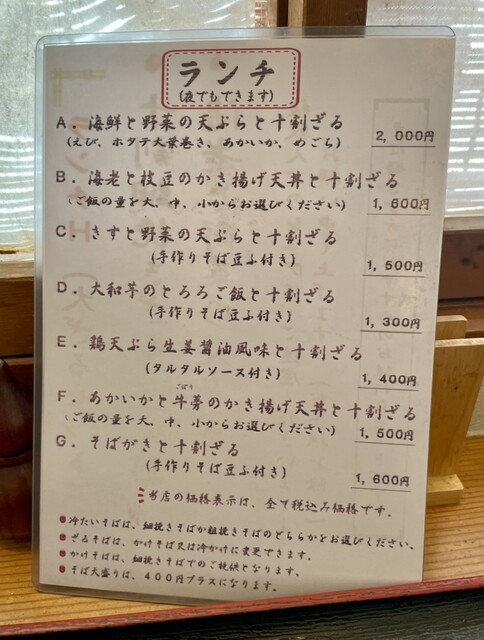 ランチ
(夜でもできます)
A. 海鮮と野菜の天ぷらと十割ざる
(えび、ホタテ大葉巻き、あかいか、めごち) 2,000円
B. 海老と枝豆のかき揚げ天丼と十割ざる
(ご飯の量を大、中、小からお選びください) 1,600円
C. きすと野菜の天ぷらと十割ざる
(手作りそば豆ふ付き) 1,500円
D. 大和芋のとろろご飯と十割ざる
(手作りそば豆ふ付き) 1,300円
E. 鶏天ぷら生姜醤油風味と十割ざる
(タルタルソース付き) 1,400円
ごぼう
F. あかいかと牛蒡のかき揚げ天丼と十割ざる
(ご飯の量を大、中、小からお選びください) 1,500円
G. そばがきと十割ざる
(手作りそば豆ふ付き) 1,600円
当店の価格表示は、全て税込み価格です。
冷たいそばは、細挽きそばか粗挽きそばのどちらかをお選びください。
ざるそばは、かけそば又は冷かけに変更できます。
かけそばは、細挽きそばでのご提供となります。
そば大盛りは、400円プラスになります。